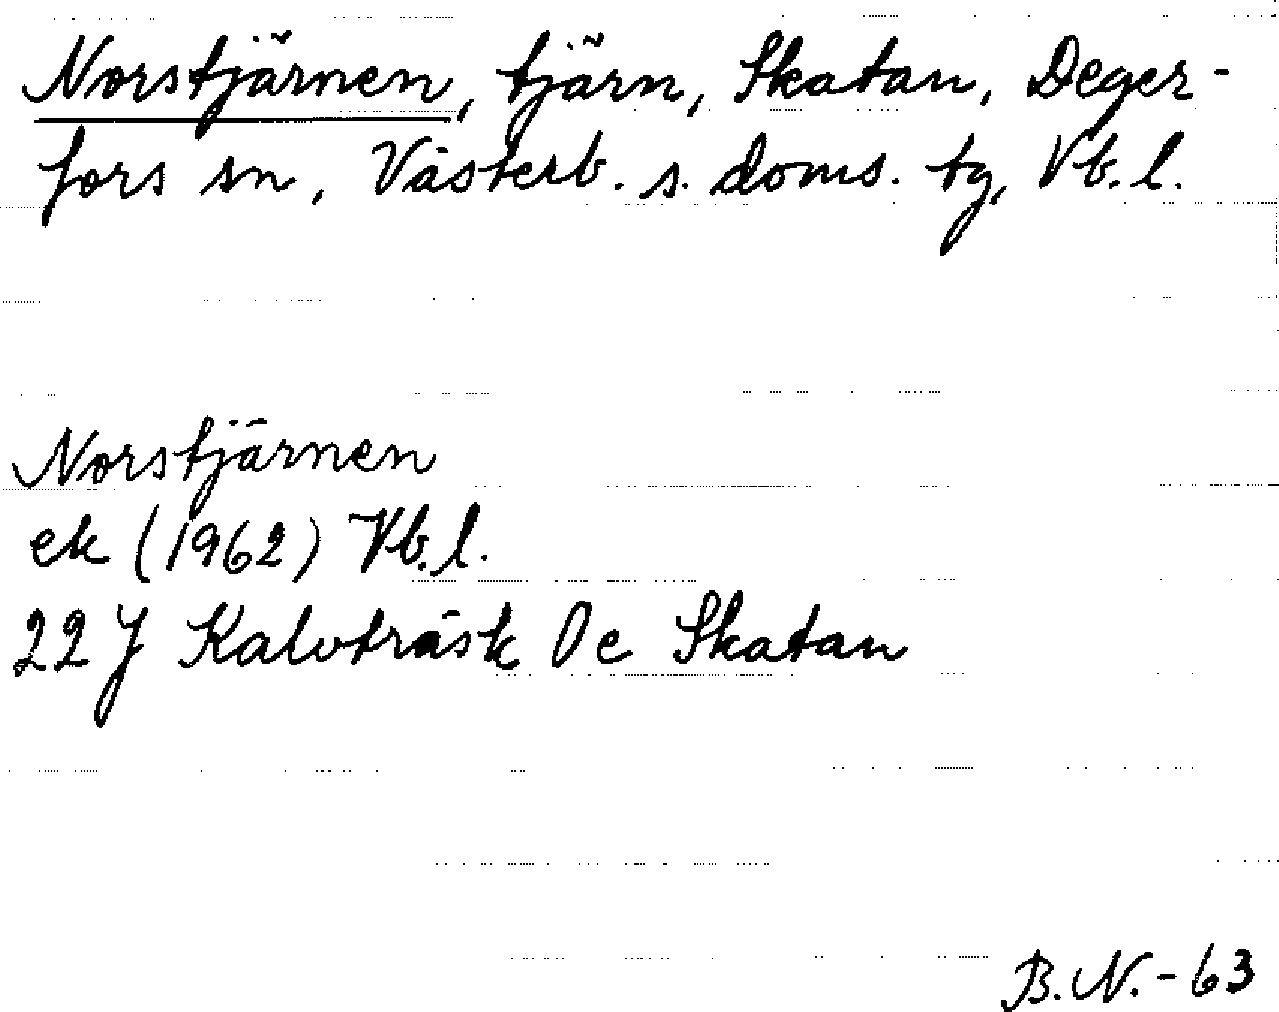 Norstjärnen, tjärn, Skatan, Deger-
fors sn, Västerb. s. doms. tg, Vb.l.
Norstjärnen
ek (1962) Vb.l.
22J Kalvträsk 0e Skatan
B.N.-63